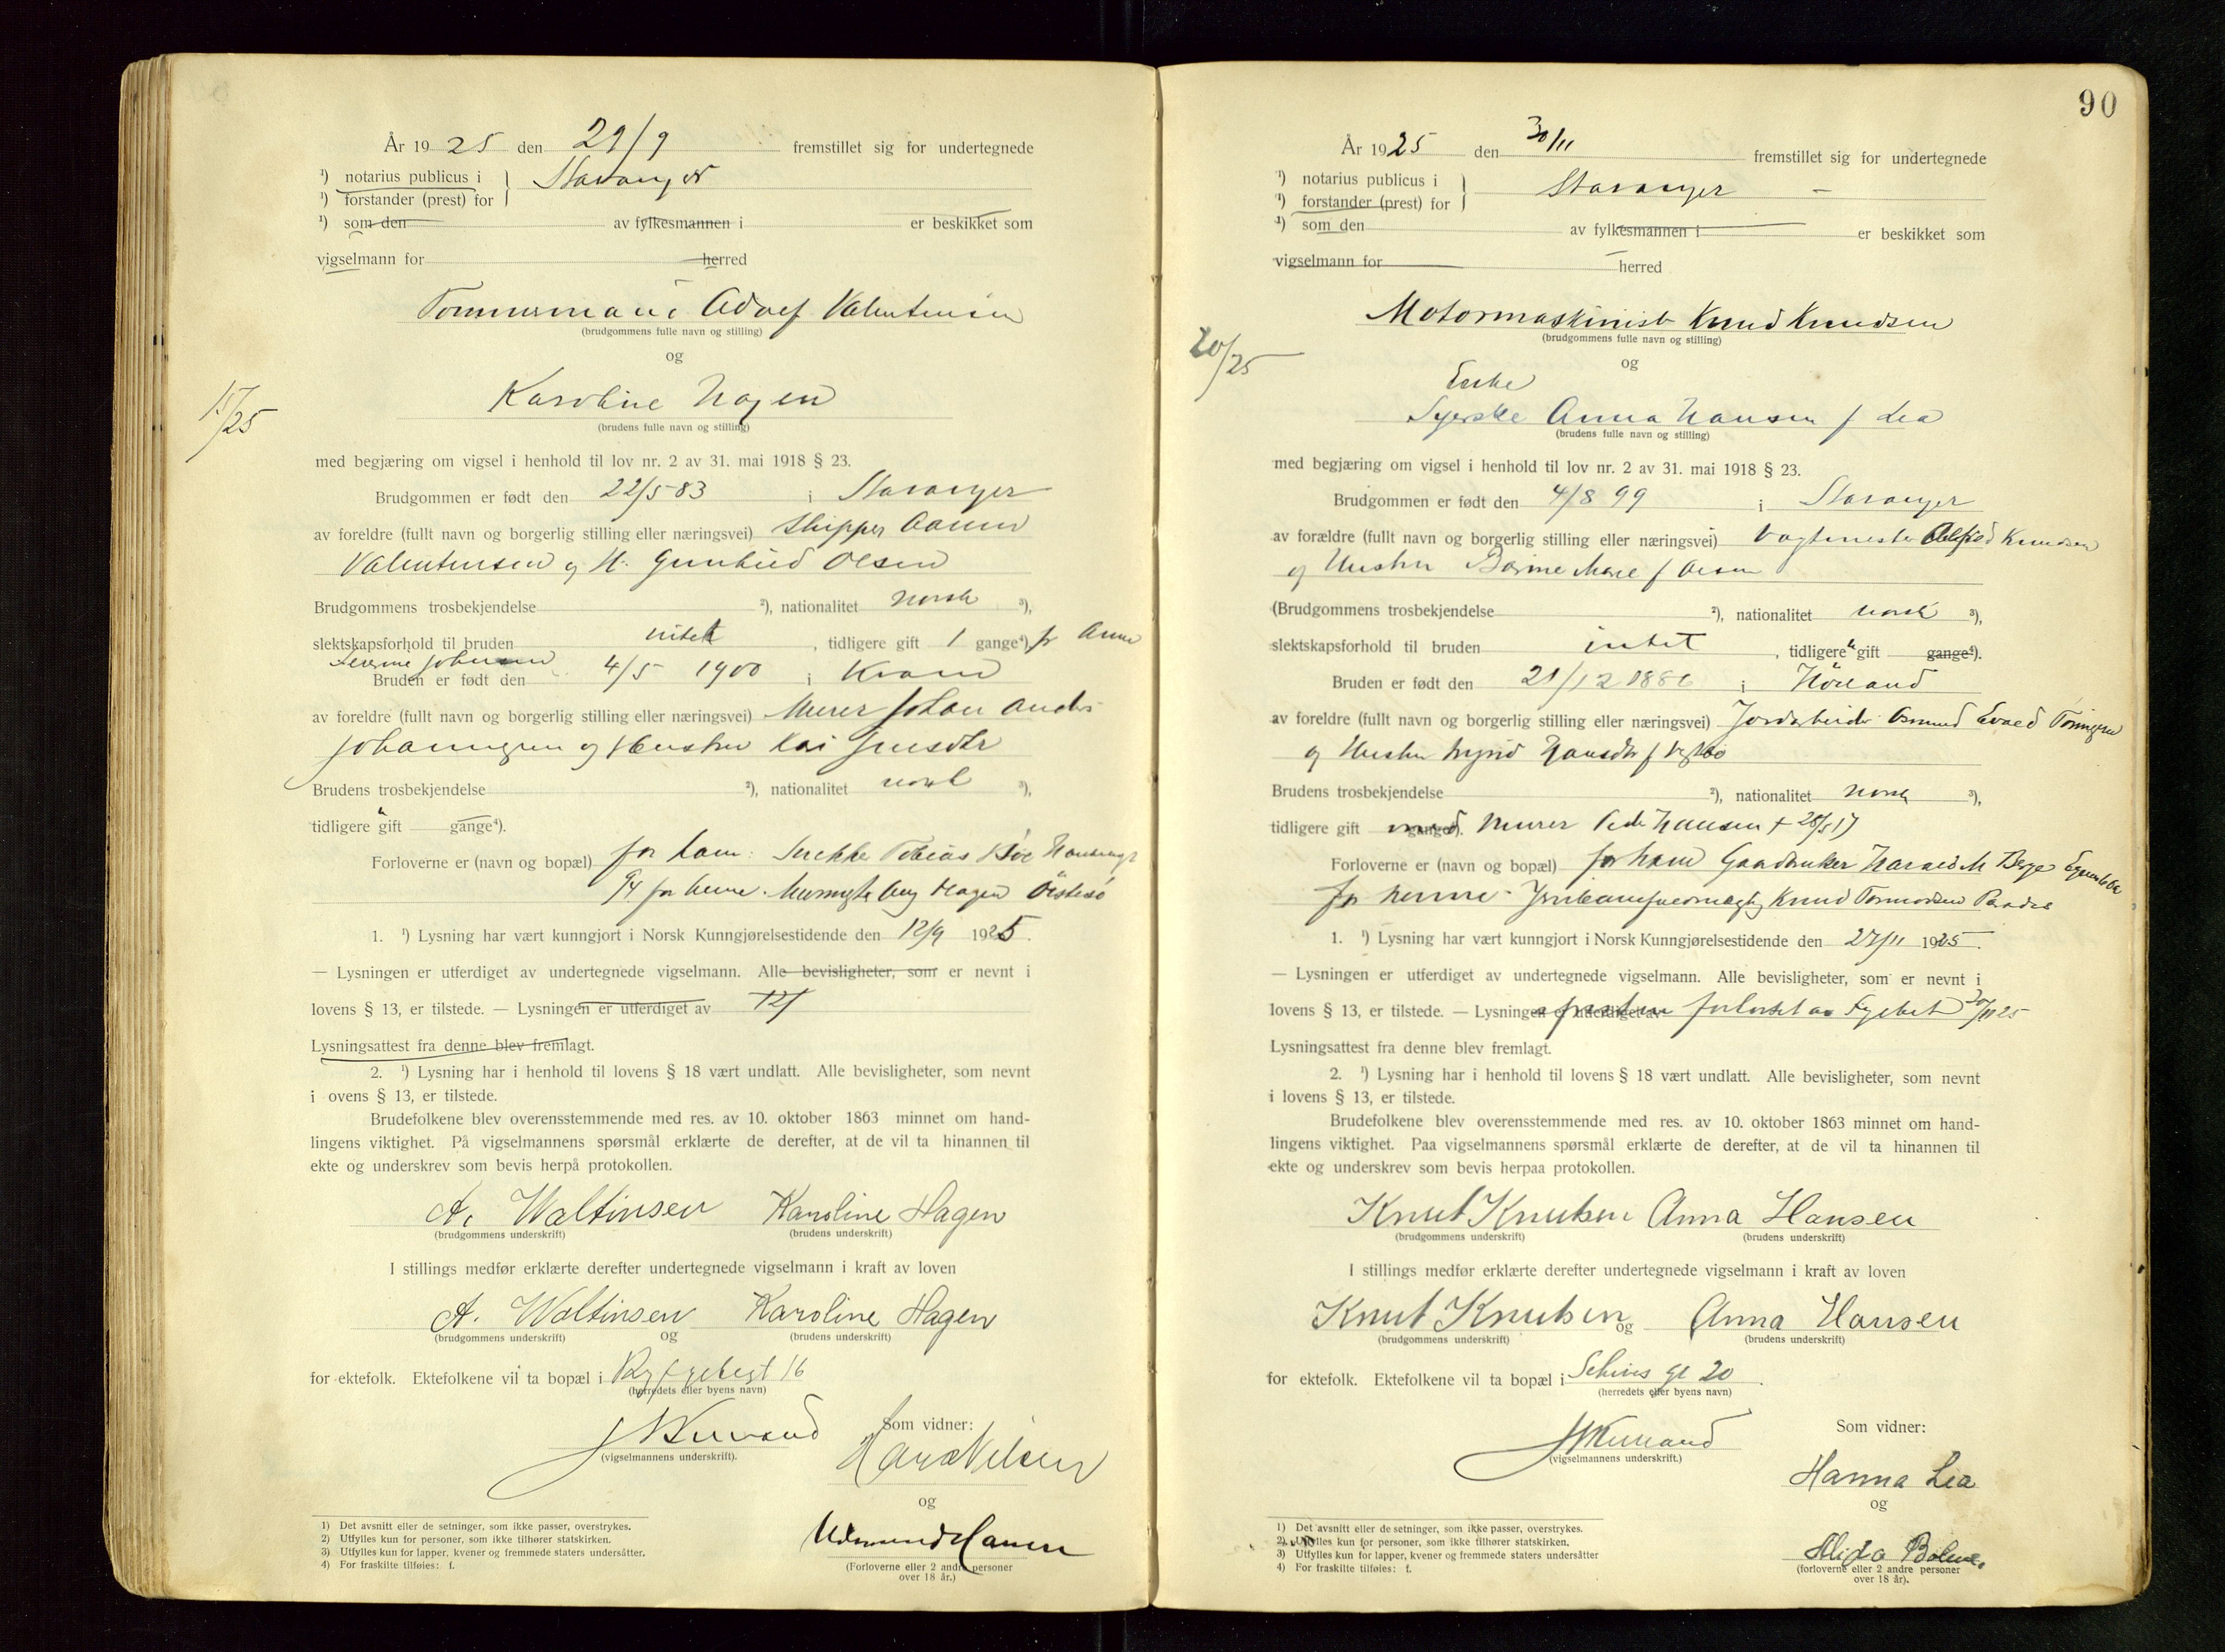 År 1925 den 29/9 fremstillet sig for undertegnede
¹) notarius publicus i } Stavanger
¹) forstander (prest) for
¹) som den av fylkesmannen i er beskikket som
vigselmann for herred
Tømmermann Adolf Valentinsen
(brudgommens fulle navn og stilling)
og
Karoline Hagen
(brudens fulle navn og stilling)
15/25
med begjæring om vigsel i henhold til lov nr. 2 av 31. mai 1918 § 23.
Brudgommen er født den 22/5 83 i Stavanger
av foreldre (fullt navn og borgerlig stilling eller næringsvei) Skipper
Valentinsen og H. Olsen
Brudgommens trosbekjendelse ²), nationalitet norsk ³),
slektskapsforhold til bruden intet , tidligere gift 1 gange⁴)
Bruden er født den 4/5 1900 i Kvam
av foreldre (fullt navn og borgerlig stilling eller næringsvei) Murer Johan
og Hustru Kari
Brudens trosbekjendelse ²), nationalitet norsk ³),
tidligere gift gange⁴).
Forloverne er (navn og bopæl) for ham: Tobias
for henne. Hagen
1. ¹) Lysning har vært kunngjort i Norsk Kunngjørelsestidende den 12/9 1925.
— Lysningen er utferdiget av undertegnede vigselmann. Alle bevisligheter, som er nevnt i
lovens § 13, er tilstede. — Lysningen er utferdiget av
Lysningsattest fra denne blev fremlagt.
2. ¹) Lysning har i henhold til lovens § 18 vært undlatt. Alle bevisligheter, som nevnt
i ovens § 13, er tilstede.
Brudefolkene blev overensstemmende med res. av 10. oktober 1863 minnet om hand-
lingens viktighet. På vigselmannens spørsmål erklærte de derefter, at de vil ta hinannen til
ekte og underskrev som bevis herpå protokollen.
A. Waltinsen Karoline Hagen
(brudgommens underskrift) (brudens underskrift)
I stillings medfør erklærte derefter undertegnede vigselmann i kraft av loven
A. Waltinsen Karoline Hagen
(brudgommens underskrift) og (brudens underskrift)
for ektefolk. Ektefolkene vil ta bopæl i 16
(herredets eller byens navn)
Som vidner:
(vigselmannens underskrift).
og
(Forloverne eller 2 andre personer
over 18 år.)
1) Det avsnitt eller de setninger, som ikke passer, overstrykes.
2) Utfylles kun for personer, som ikke tilhører statskirken.
3) Utfylles kun for lapper, kvener og fremmede staters undersåtter.
4) For fraskilte tilføies: f.
90
År 1925 den 30/11 fremstillet sig for undertegnede
¹) notarius publicus i } Stavanger
¹) forstander (prest) for
¹) som den av fylkesmannen i er beskikket som
vigselmann for herred
Motormaskinist Knud Knudsen
(brudgommens fulle navn og stilling)
20/25
og
Enke
Syerske Anna Hansen f Lea
(brudens fulle navn og stilling)
med begjæring om vigsel i henhold til lov nr. 2 av 31. mai 1918 § 23.
Brudgommen er født den 4/8 99 i Stavanger
av forældre (fullt navn og borgerlig stilling eller næringsvei) Vagtmester Knudsen
og Hustru
(Brudgommens trosbekjendelse ²), nationalitet norsk ³),
slektskapsforhold til bruden intet , tidligere gift gange⁴).
Bruden er født den 21/12 1886 i
av foreldre (fullt navn og borgerlig stilling eller næringsvei)
og Hustru
Brudens trosbekjendelse ²), nationalitet norsk ³),
tidligere gift med Murer Peder Hansen + 28/5 17
Forloverne er (navn og bopæl) for ham Harald M Berge
for henne Knud
1. ¹) Lysning har vært kunngjort i Norsk Kunngjørelsestidende den 27/11 1925.
— Lysningen er utferdiget av undertegnede vigselmann. Alle bevisligheter, som er nevnt i
lovens § 13, er tilstede. — Lysningen er utferdiget av
Lysningsattest fra denne blev fremlagt.
2. ¹) Lysning har i henhold til lovens § 18 vært undlatt. Alle bevisligheter, som nevnt
i lovens § 13, er tilstede.
Brudefolkene blev overensstemmende med res. av 10. oktober 1863 minnet om hand-
lingens viktighet. Paa vigselmannens spørsmål erklærte de derefter, at de vil ta hinannen til
ekte og underskrev som bevis herpaa protokollen.
Knut Knutsen Anna Hansen
(brudgommens underskrift) (brudens underskrift)
I stillings medfør erklærte derefter undertegnede vigselmann i kraft av loven
Knut Knutsen og Anna Hansen
(brudgommens underskrift) (brudens underskrift)
for ektefolk. Ektefolkene vil ta bopæl i gt 20
(herredets eller byens navn)
Som vidner:
(vigselmannens underskrift.)
Hanna Lea
og
(forloverne eller 2 andre personer
over 18 år).
1) Det avsnitt eller de setninger, som ikke passer, overstrykes.
2) Utfylles kun for personer, som ikke tilhører statskirken.
3) Utfylles kun for lapper, kvener og fremmede staters undersåtter
4) For fraskilte tilføies: f.